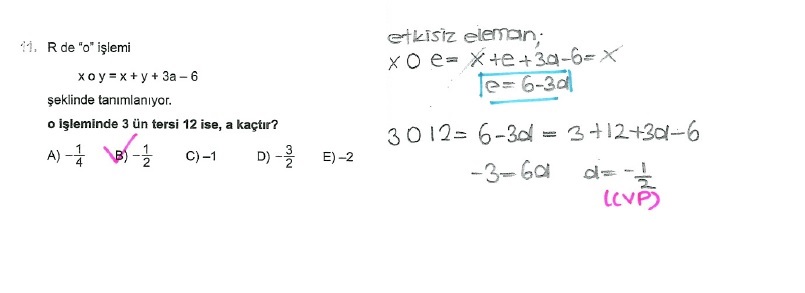 11. R de "o" işlemi
x o y = x + y + 3a – 6
şeklinde tanımlanıyor.
o işleminde 3 ün tersi 12 ise, a kaçtır?
A) –1/4 B) –1/2 C) –1 D) –3/2 E) –2
etkisiz eleman;
x o e= x+e+3a-6= x
e= 6-3a
3 o 12= 6-3a = 3+12+3a-6
-3=6a a= -1/2
(CVP)